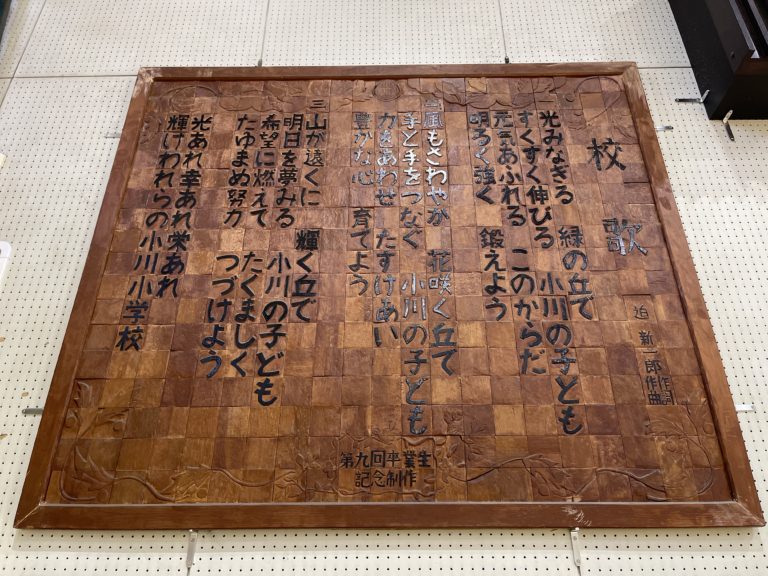 校歌
迫新一郎 作詞作曲
光みなぎる 緑の丘で
すくすく伸びる 小川の子ども
元気あふれる このからだ
明るく強く 鍛えよう
二 風もさわやか 花咲く丘て
手と手をつなぐ 小川の子ども
力をあわせ たすけあい
豊かな心 育てよう
三 山が遠くに 輝く丘で
明日を夢みる 小川の子ども
希望に燃えて たくましく
たゆまぬ努力 つづけよう
光あれ幸あれ栄あれ
輝けわれらの小川小学校
第九回卒業生
記念制作